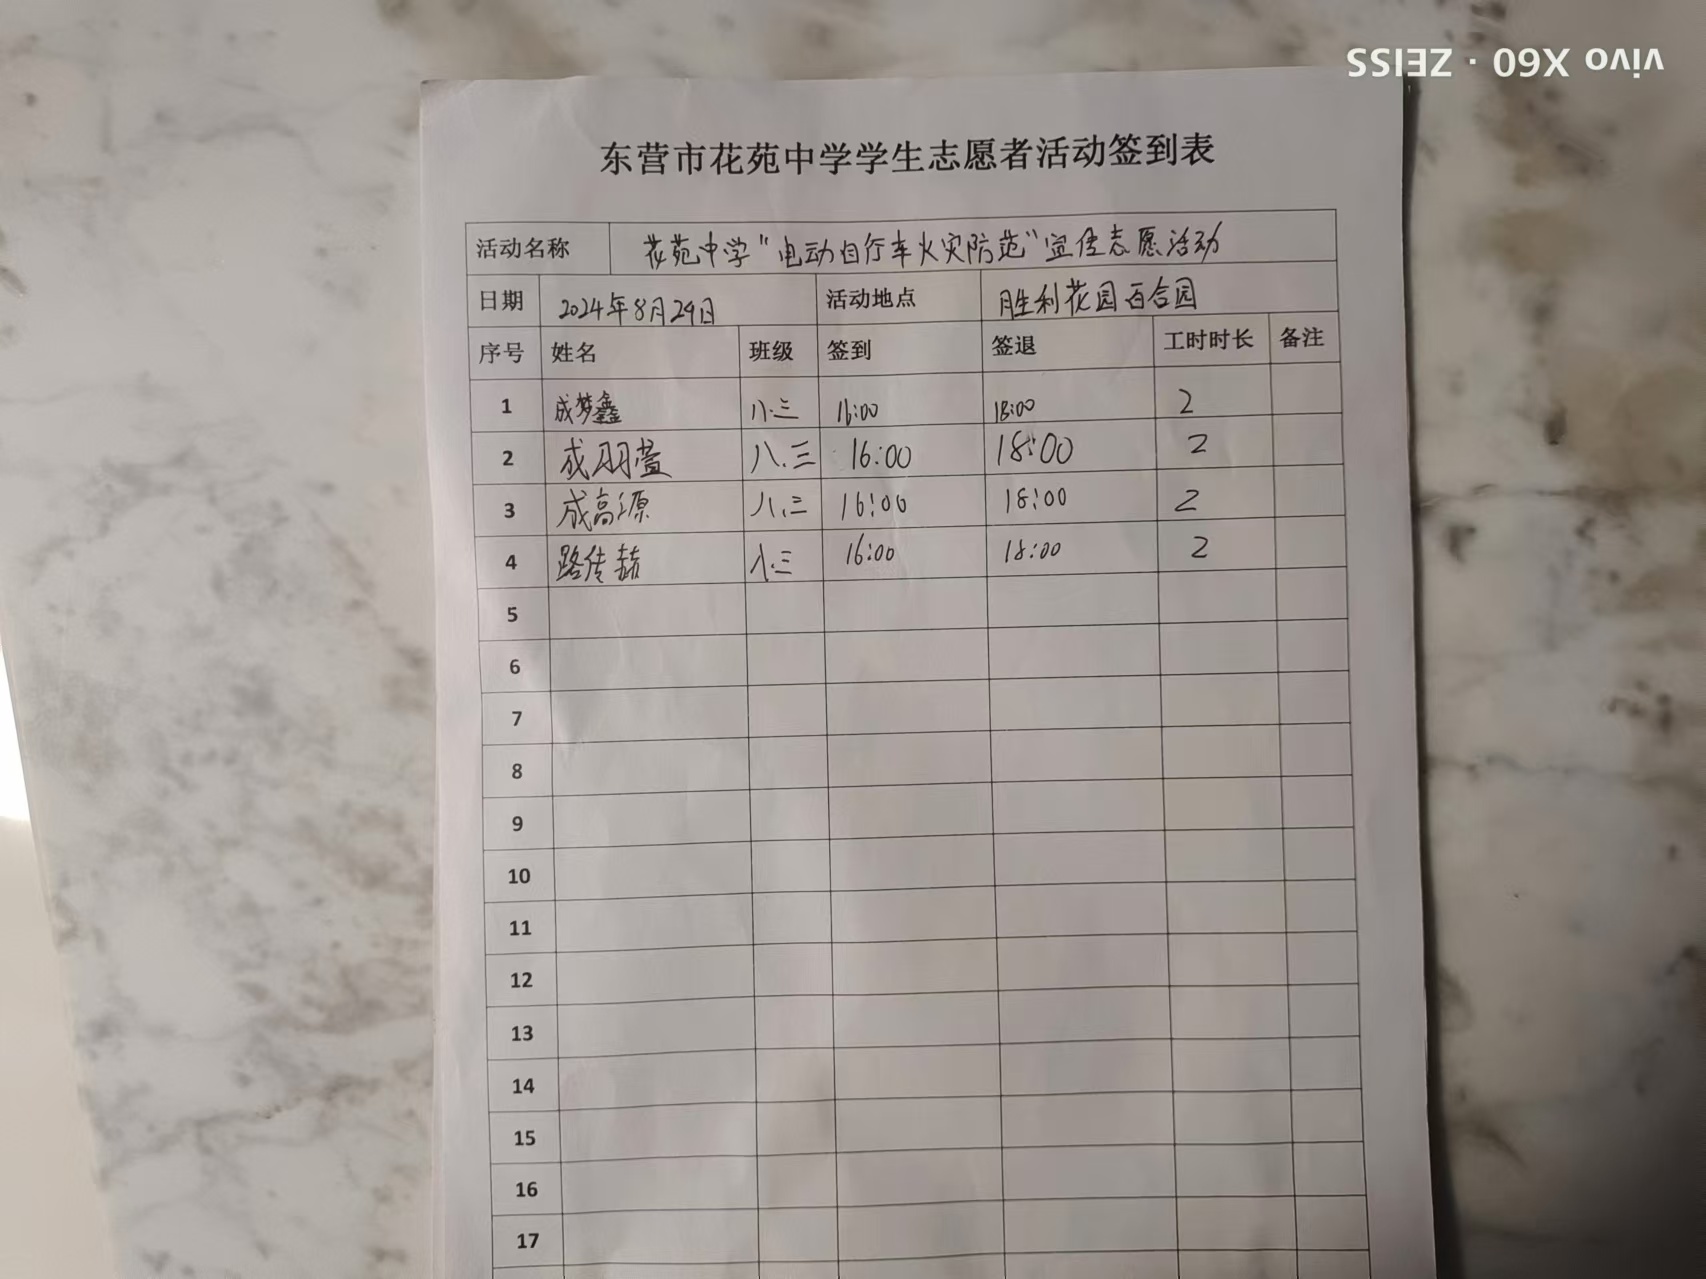 vivo X60 · ZEISS
东营市花苑中学学生志愿者活动签到表
活动名称 花苑中学"电动自行车火灾防范"宣传志愿活动
日期 2024年8月29日 活动地点 胜利花园百合园
序号 姓名 班级 签到 签退 工时时长 备注
1 成梦鑫 八.三 16:00 18:00 2
2 成羽萱 八.三 16:00 18:00 2
3 成高源 八.三 16:00 18:00 2
4 路传喆 八.三 16:00 18:00 2
5
6
7
8
9
10
11
12
13
14
15
16
17